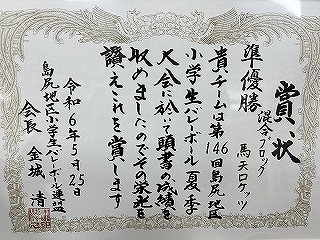 賞状
混合ブロック
準優勝 馬天ロケッツ
貴チームは第146回島尻地区
小学生バレーボール夏季
大会に於いて頭書の成績を
収めましたのでその栄光を
讃えこれを賞します
令和6年5月25日
島尻地区小学生バレーボール連盟
会長 金城 清